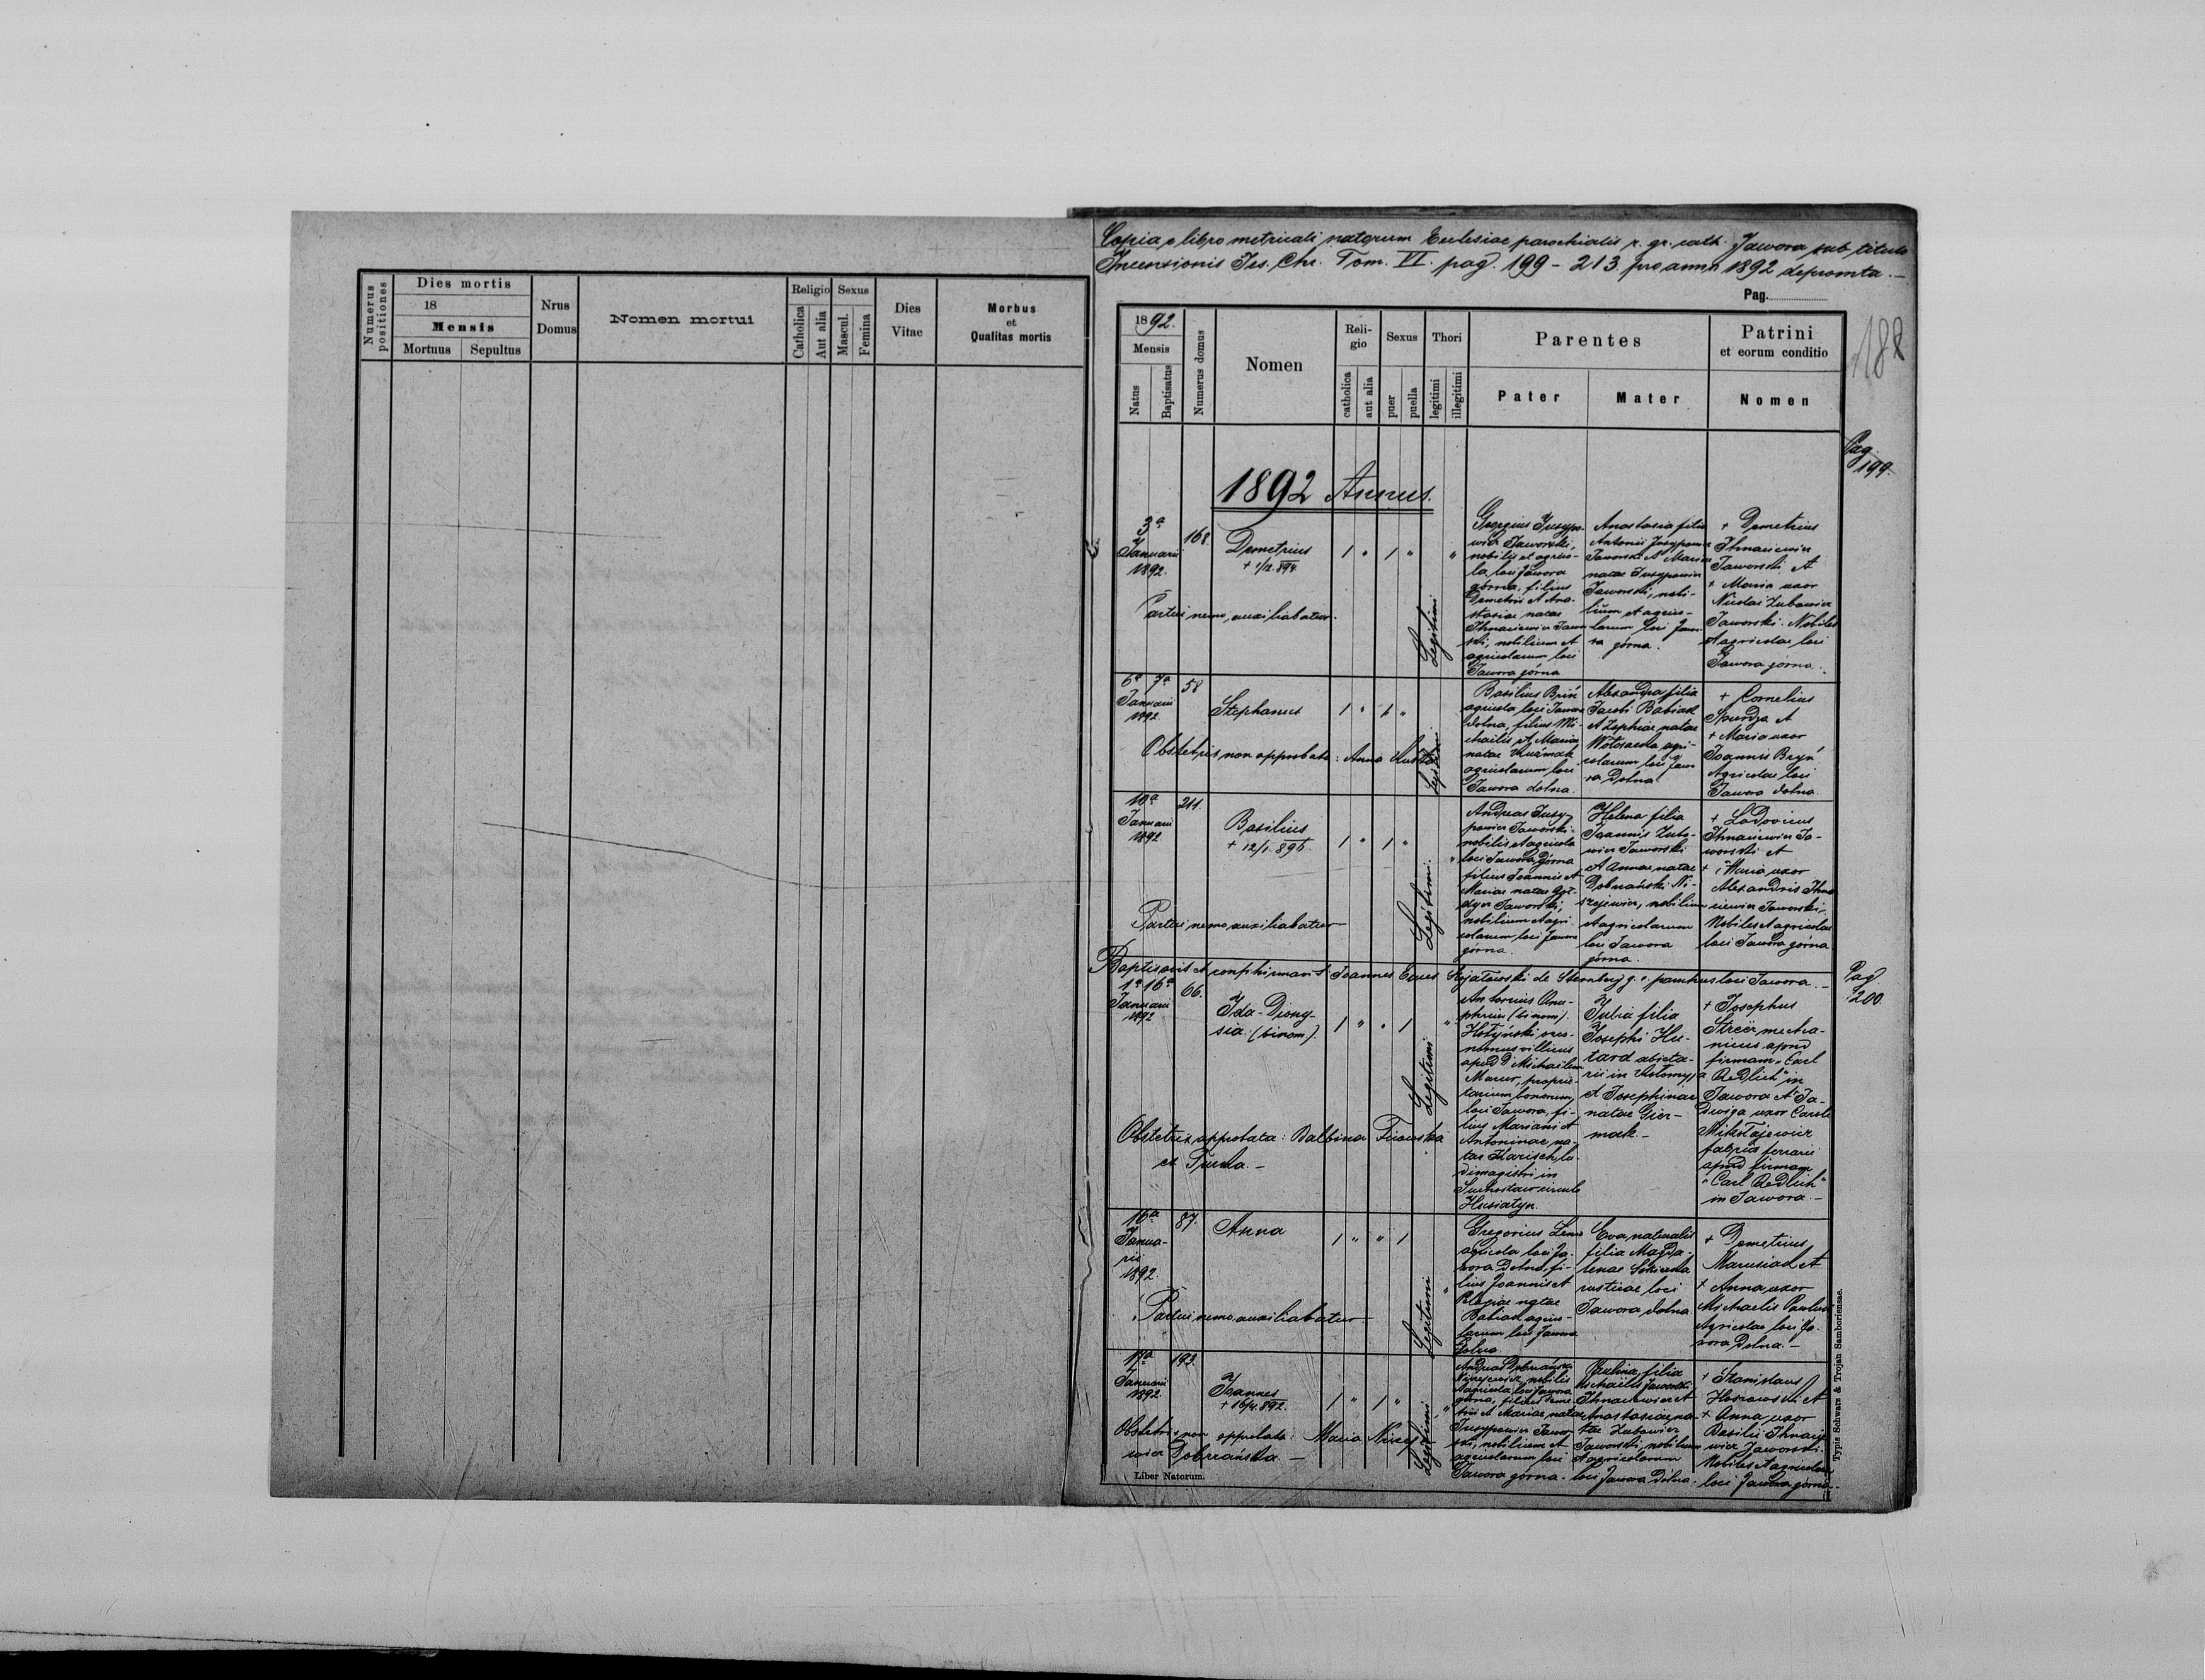 Numerus positiones
Dies mortis
18
Mensis
Mortuus Sepultus
Nrus Domus
Nomen mortui
Religio
Catholica
Aut alia
Sexus
Mascul.
Femina
Dies Vitae
Morbus
et
Qualitas mortis
Copia e libro metricali natorum Ecclesiae parochialis r. gr. cath. Jawora sub titulo
Ascensionis Jes. Chr. Tom. VI. pag. 199 - 213 pro anno 1892 depromta. -
Pag.
188
1892.
Mensis
Natus
Baptisatus
Numerus domus
Nomen
Religio
catholica
aut alia
Sexus
puer
puella
Thori
legitimi
illegitimi
Parentes
Pater
Mater
Patrini
et eorum conditio
Nomen
Pag.
199.
1892 Annus.
3a
Januarii
1892.
168.
Demetrius
+ 1/12 894.
1 " 1 " "
Partui nemo auxiliabatur.
Legitimi
Georgius Jusypo-
wicz Jaworski,
nobilis et agrico-
la loci Jawora
górna, filius
Demetrii et Ana-
stasiae natae
Ihnaciewicz Jawor-
ski, nobilium et
agricolarum loci
Jawora górna
Anastasia filia
Antonii Jusypowicz
Jaworski et Mariae
natae Jusypowicz
Jaworski, nobi-
lium et agrico-
larum loci Jawo-
ra górna.
+ Demetrius
Ihnaciewicz
Jaworski et
+ Maria uxor
Nicolai Zubowicz
Jaworski. Nobiles
et agricolae loci
Jawora górna.
6a 7a
Januarii
1892
58
Stephanus
1 " 1 "
Obstetrix non approbata: Anna
Legitimi
Basilius Bryń
agricola loci Jawora
dolna, filius Mi-
chaelis et Mariae
natae Kuźmak
agricolarum loci
Jawora dolna.
Alexandra filia
Jacobi Babiak
et Zophiae natae
agri-
colarum loci Jawo-
ra Dolna
+ Cornelius
et
+ Maria uxor
Joannis Bryń
Agricolae loci
Jawora dolna.
10a
Januarii
1892
211.
Basilius
+ 12/1. 896.
1 " 1 " "
Partui nemo auxiliabatur
Legitimi.
Andreas Jusy-
powicz Jaworski
nobilis et agricola
loci Jawora Górna
filius Joannis et
Mariae natae
Jaworski,
nobilium et agri-
colarum loci Jawora
górna.
Helena filia
Joannis Zubo-
wicz Jaworski
et Annae natae
Dobrzański Ni-
szejewicz, nobilium
et agricolarum
loci Jawora
górna.
+ Ludovicus
Ihnaciewicz Ja-
worski et
+ Maria uxor
Alexandris Ihna-
ciewicz Jaworski.
Nobiles et agricolae
loci Jawora górna
Baptisavit et confirmavit Joannes Eques de Sternberg g. c. parochus loci Jawora. -
Pag
200.
1a 16a
Januarii
1892
66.
Ida-Diony-
sia. (binom).
1 " " 1 "
Obstetrix approbata: Balbina
ex Turka. -
Legitimi
Antonius Onu-
phrius (binom).
Hołyński, oeco-
nomus villicus
apud D. Michaelem
proprie-
tarium bonorum,
loci Jawora, fi-
lius Mariani et
Antoninae na-
tae Harisch, lu-
dimagistri in
Suchostaw circulo
Husiatyn.
Julia filia
Josephi Hu-
tard abieta-
rii in Kołomyja
et Josephinae
natae Gier-
mak. -
+ Josephus
Streër mecha-
nicus apud
firmam "Carl
Redlich" in
Jawora et Ja-
dwiga uxor Caroli
Mikołajewicz
fabri ferrarii
apud firmam
"Carl Redlich"
in Jawora. -
16a
Janua-
rii
1892
87.
Anna
1 " " 1 "
Partui nemo auxiliabatur
Legitimi
Gregorius
agricola loci Ja-
wora Dolna, fi-
lius Joannis et
Pelagiae natae
Babiak agrico-
larum loci Jawora
Dolna
Eva, naturalis
filia Magda-
lenae
rusticae loci
Jawora dolna.
+ Demetrius
Marusiak et
+ Anna uxor
Michaelis
Agricolae loci Ja-
wora Dolna. -
17a
Januarii
1892
193.
Joannes
+ 16/4. 892.
1 " 1 " "
Obstetrix non approbata: Maria Niszeje-
wicz Dobrzańska. -
Legitimi
Andreas Dobrzański
Niszejewicz, nobilis
et agricola loci Jawora
górna, filius Deme-
trii et Mariae natae
Jusypowicz Jawor-
ski, nobilium et
agricolarum loci
Jawora górna.
Paulina, filia
Michaelis Jaworski
Ihnaciewicz et
Anastasiae na-
tae Zubowicz
Jaworski, nobilium
et agricolarum
loci Jawora Dolna.
+ Stanislaus
et
+ Anna uxor
Basilii Ihnacie-
wicz Jaworski.
Nobiles et agricolae
loci Jawora górna.
Liber Natorum.
Typis Schwarz & Trojan Samboriensae.